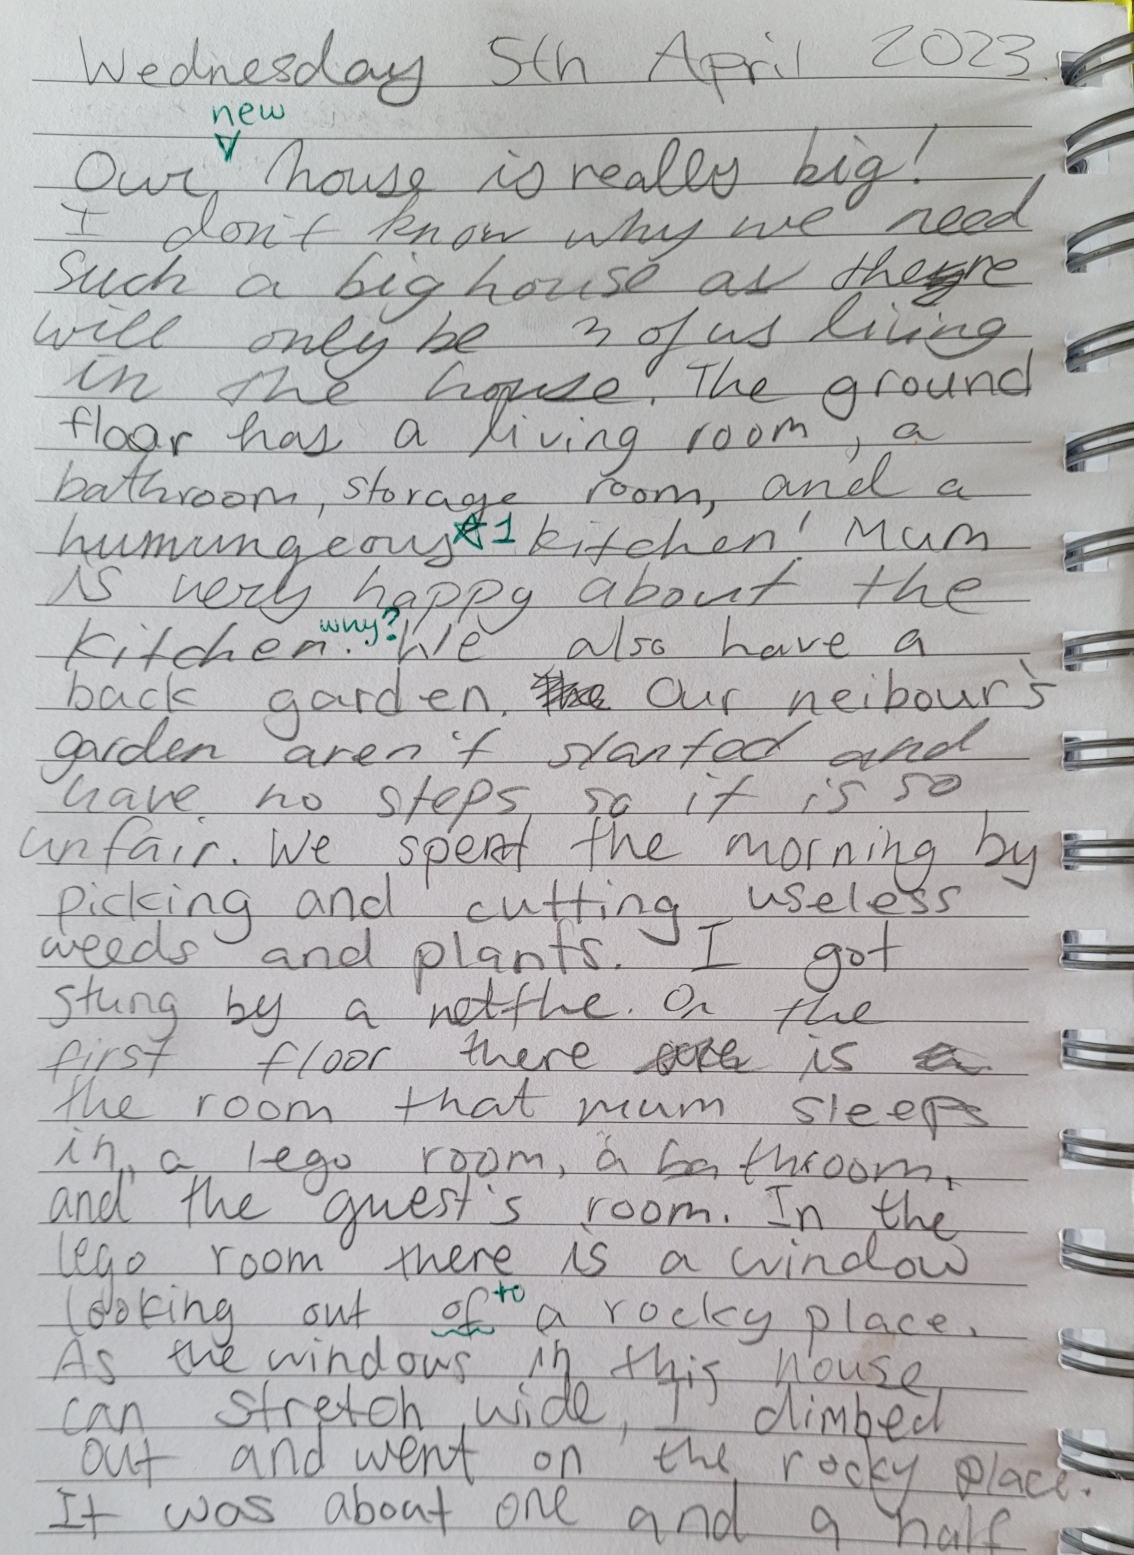 Wednesday 5th April 2023.
new
Our house is really big!
I don't know why we need
such a big house as there
will only be 3 of us living
in the house. The ground
floor has a living room, a
bathroom, storage room, and a
humungeous 1 kitchen! Mum
is very happy about the
why?
kitchen. We also have a
back garden. Our neibour's
garden aren't slanted and
have no steps, so it is so
unfair. We spent the morning by
picking and cutting useless
weeds and plants. I got
stung by a netthe. On the
first floor there is
the room that mum sleeps
in, a lego room, a bathroom,
and the guest's room. In the
lego room there is a window
to
looking out of a rocky place.
As the windows in this house
can stretch wide, I climbed
out and went on the rocky place.
It was about one and a half